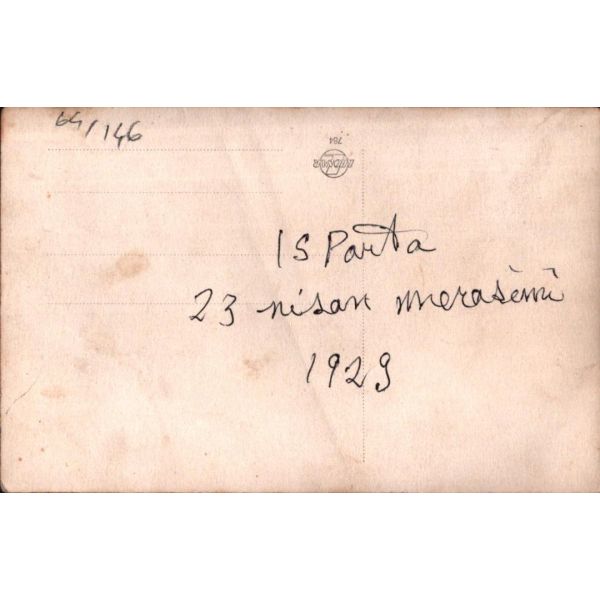 64/146
784
ISParta
23 nisan merasimi
1929